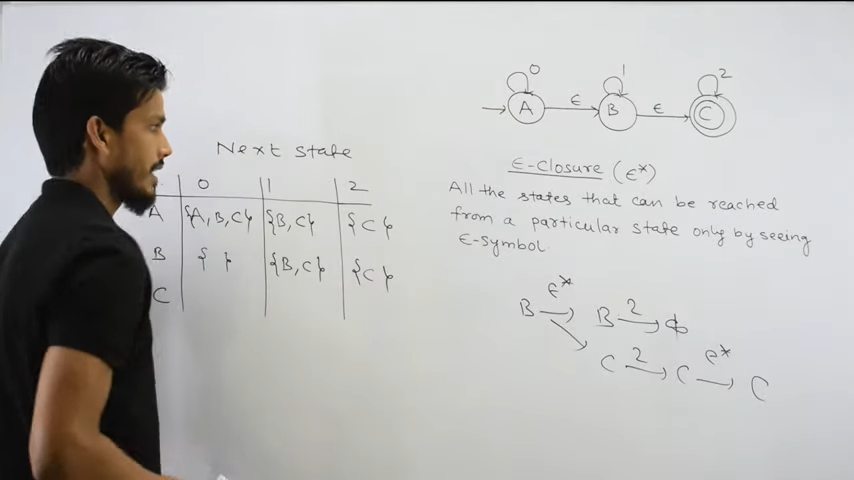 0 1 2
A ε B ε C
Next state
0 1 2
A {A, B, C} {B, C} {C}
B { } {B, C} {C}
C
ε-Closure (ε*)
All the states that can be reached
from a particular state only by seeing
ε-symbol.
ε*
B → B 2→ ϕ
C 2→ C ε*→ C